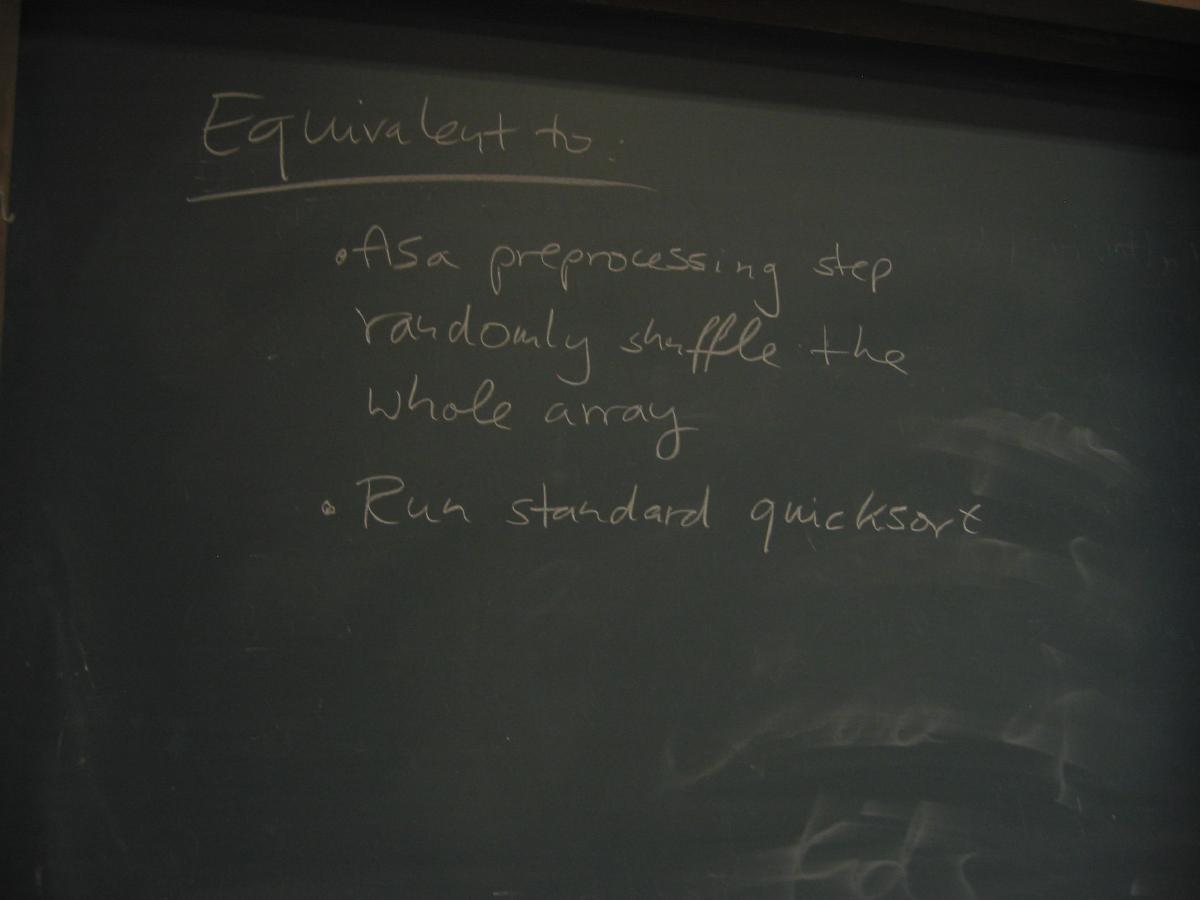 Equivalent to:
• As a preprocessing step
randomly shuffle the
whole array
• Run standard quicksort